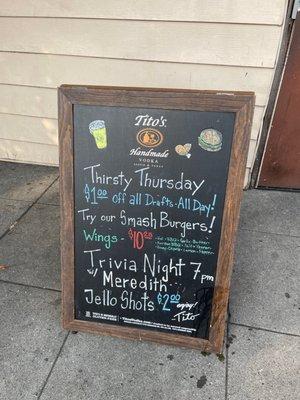 Tito's
Handmade
VODKA
AUSTIN ★ TEXAS
Thirsty Thursday
$1.00 off all Drafts-All Day!
Try our Smash Burgers!
Wings - $10.00
Trivia Night 7pm
w/ Meredith
Jello Shots $2.00
enjoy!
Tito